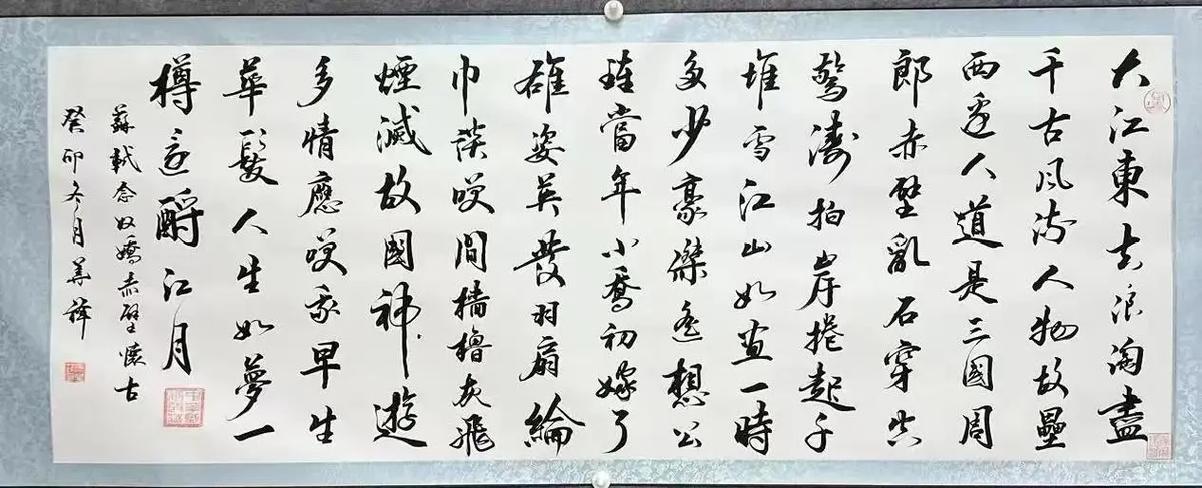 大江東去浪淘盡
千古風流人物故壘
西邊人道是三國周
郎赤壁亂石穿空
驚濤拍岸捲起千
堆雪江山如畫一時
多少豪傑遙想公
瑾當年小喬初嫁了
雄姿英發羽扇綸
巾談笑間檣櫓灰飛
煙滅故國神遊
多情應笑我早生
華髮人生如夢一
樽還酹江月
蘇軾念奴嬌赤壁懷古
癸卯冬月